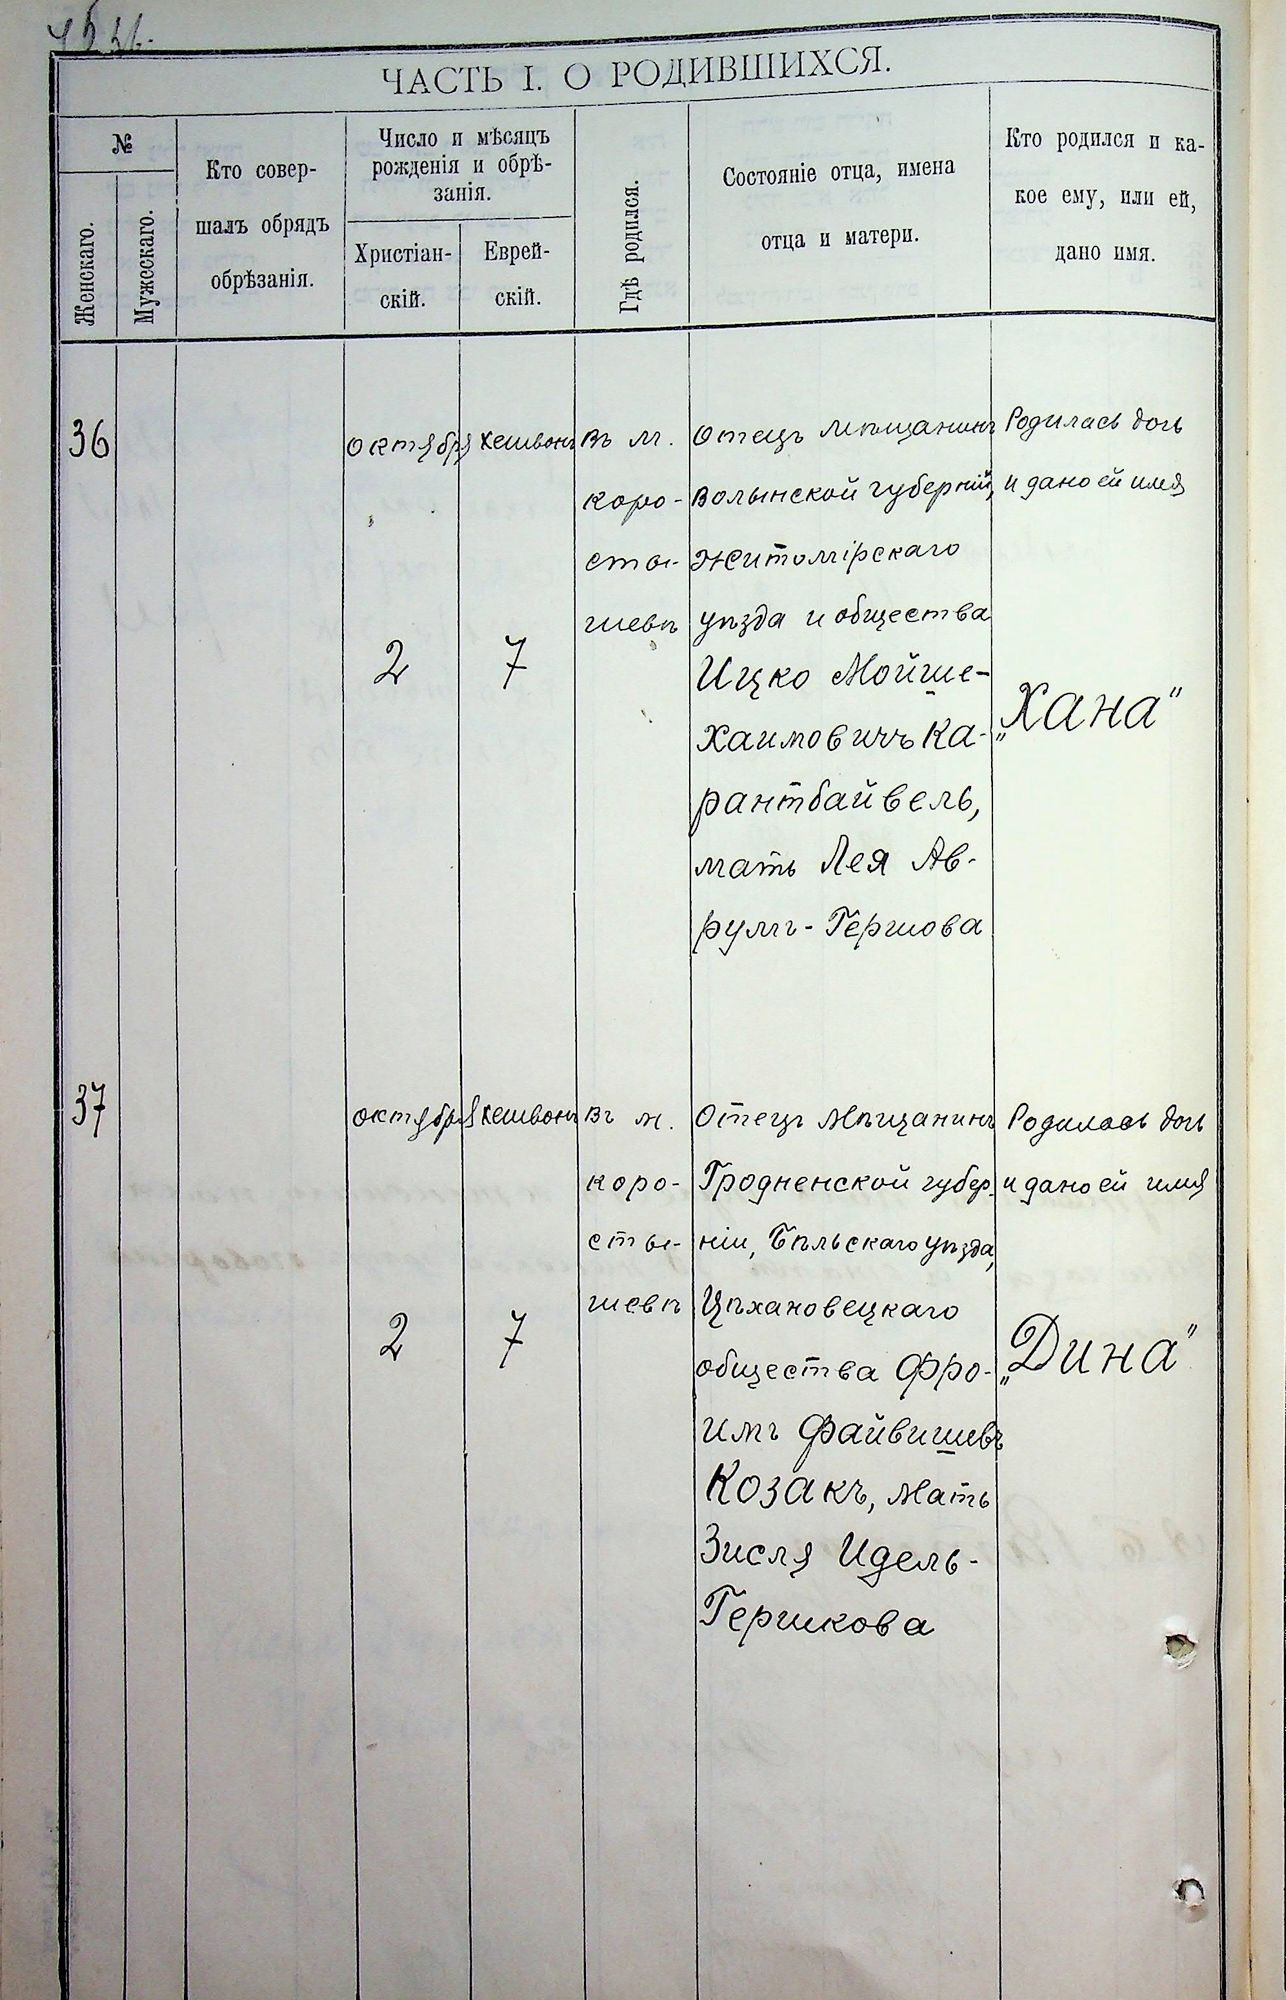 ЧАСТЬ I. О РОДИВШИХСЯ.
№
Женскаго.
Мужескаго.
Кто совер-
шалъ обрядъ
обрѣзанія.
Число и мѣсяцъ
рожденія и обрѣ-
занія.
Христіан-
скій.
Еврей-
скій.
Гдѣ родился.
Состояніе отца, имена
отца и матери.
Кто родился и ка-
кое ему, или ей,
дано имя.
36
октября
2
Хешвонъ
7
Въ м.
коро-
сты-
шевѣ
Отецъ мѣщанинъ
Волынской губерніи,
Житомірскаго
уѣзда и общества
Ицко Мойше-
Хаимовичъ Ка-
рантбайвель,
мать Лея Ав-
румъ-Гершова
Родилась дочь
и дано ей имя
„Хана“
37
октября
2
Хешвонъ
7
Въ м.
коро-
сты-
шевѣ
Отецъ мѣщанинъ
Гродненской губер-
ніи, Бѣльскаго уѣзда,
Цѣхановецкаго
общества Фро-
имъ Файвишевъ
Козакъ, мать
Зисля Идель-
Гершкова
Родилась дочь
и дано ей имя
„Дина“